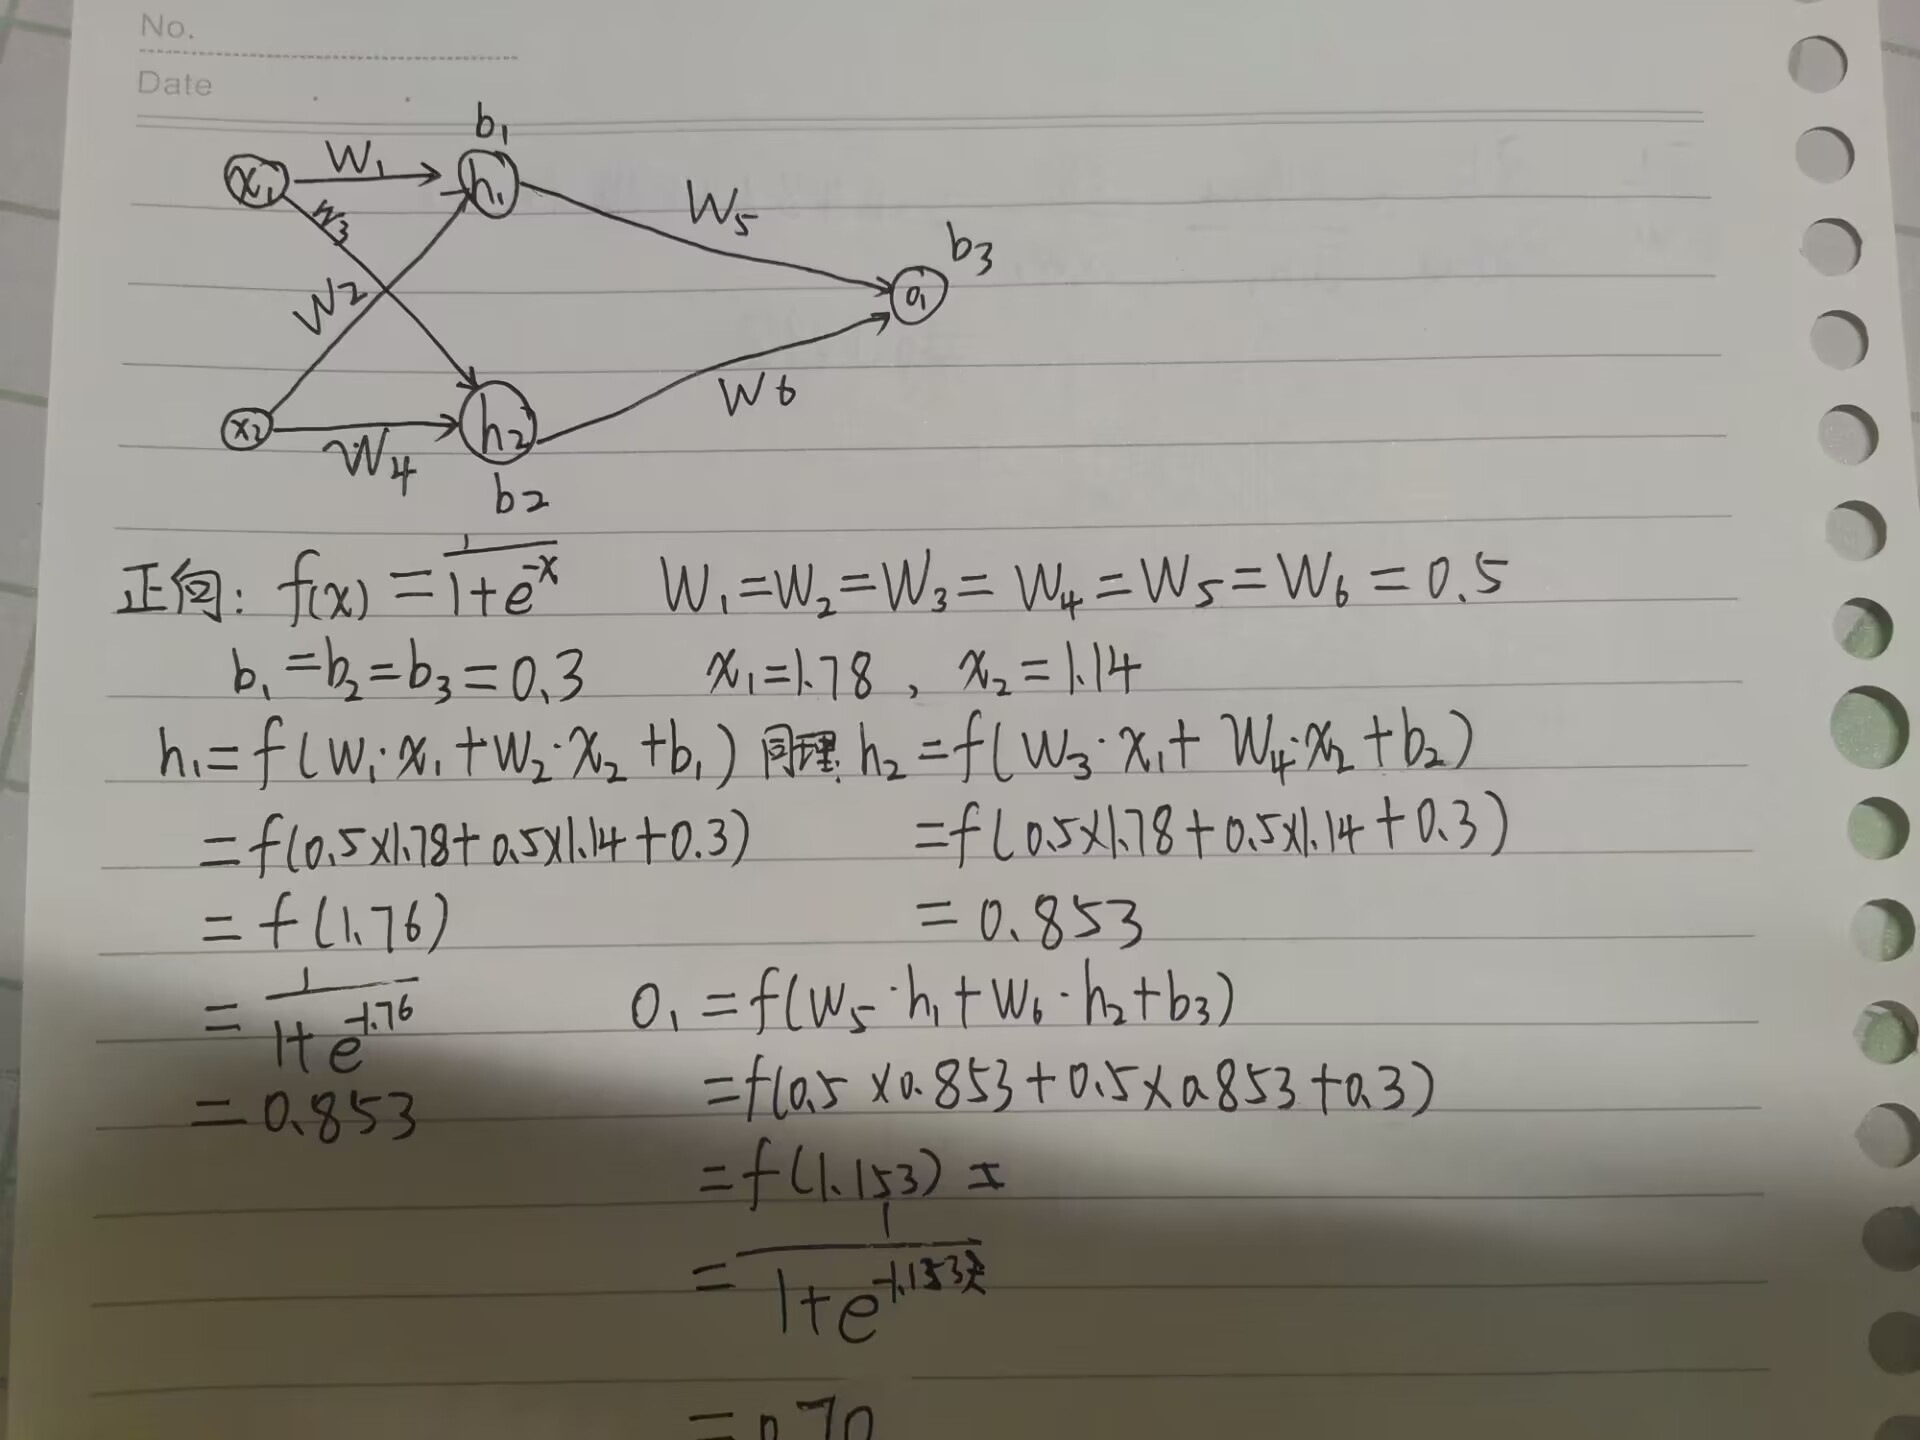 No.
Date
b₁
x₁ W₁ h₁
W₃
W₅
b₃
W₂
o₁
W6
x₂ W₄ h₂
b₂
正向: f(x) = 1/(1+e^-x) W₁=W₂=W₃=W₄=W₅=W₆=0.5
b₁=b₂=b₃=0.3 x₁=1.78, x₂=1.14
h₁=f(W₁·x₁+W₂·x₂+b₁) 同理: h₂=f(W₃·x₁+W₄·x₂+b₂)
=f(0.5×1.78+0.5×1.14+0.3) =f(0.5×1.78+0.5×1.14+0.3)
=f(1.76) =0.853
=1/(1+e^-1.76) O₁=f(W₅·h₁+W₆·h₂+b₃)
=0.853 =f(0.5×0.853+0.5×0.853+0.3)
=f(1.153) =
=1/(1+e^-1.153)